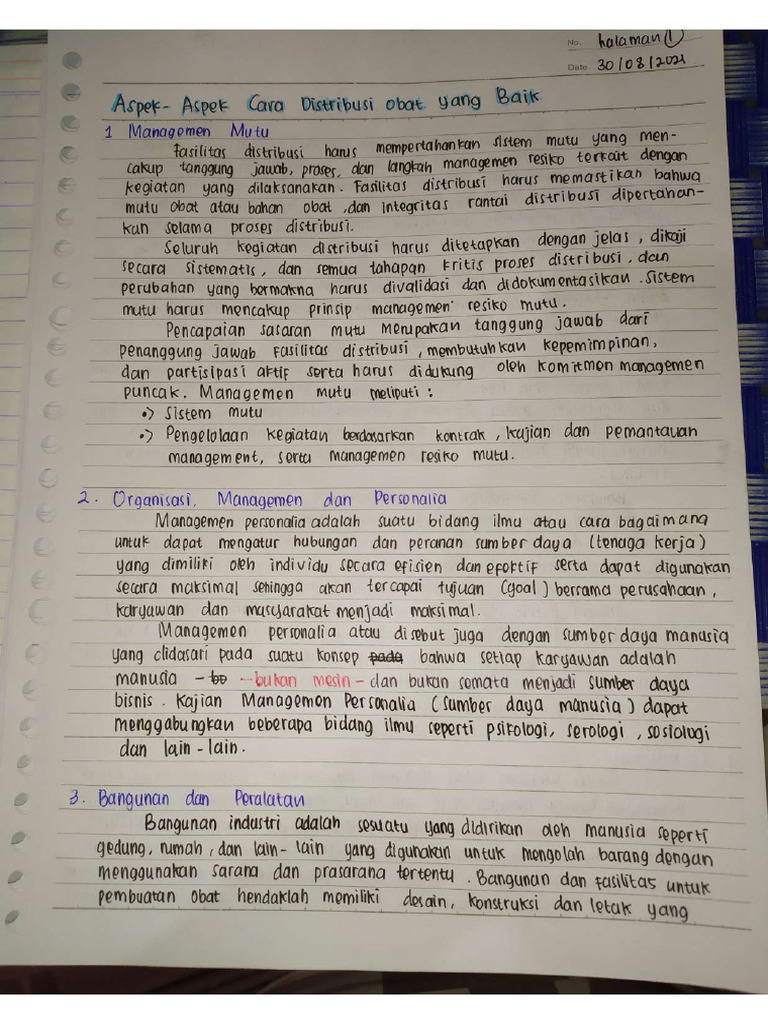 No. halaman 1
Date 30/08/2021
Aspek-Aspek Cara Distribusi obat yang Baik
1 Managemen Mutu
Fasilitas distribusi harus mempertahankan sistem mutu yang men-
cakup tanggung jawab, proses, dan langkah managemen resiko terkait dengan
kegiatan yang dilaksanakan. Fasilitas distribusi harus memastikan bahwa
mutu obat atau bahan obat, dan integritas rantai distribusi dipertahan-
kan selama proses distribusi.
Seluruh kegiatan distribusi harus ditetapkan dengan jelas, dikaji
secara sistematis, dan semua tahapan kritis proses distribusi, dan
perubahan yang bermakna harus divalidasi dan didokumentasikan. Sistem
mutu harus mencakup prinsip managemen resiko mutu.
Pencapaian sasaran mutu merupakan tanggung jawab dari
penanggung jawab fasilitas distribusi, membutuhkan kepemimpinan,
dan partisipasi aktif serta harus didukung oleh komitmen managemen
puncak. Managemen mutu meliputi :
•> Sistem mutu
•> Pengelolaan kegiatan berdasarkan kontrak, kajian dan pemantauan
management, serta managemen resiko mutu.
2. Organisasi, Managemen dan Personalia
Managemen personalia adalah suatu bidang ilmu atau cara bagaimang
untuk dapat mengatur hubungan dan peranan sumber daya (tenaga kerja)
yang dimiliki oleh individu secara efisien dan efektif serta dapat digunakan
secara maksimal sehingga akan tercapai tujuan (goal) bersama perusahaan,
karyawan dan masyarakat menjadi maksimal.
Managemen personalia atau disebut juga dengan sumber daya manusia
yang didasari pada suatu konsep pada bahwa setiap karyawan adalah
manusia - bu - bukan mesin - dan bukan semata menjadi sumber daya
bisnis. Kajian Managemen Personalia (sumber daya manusia) dapat
menggabungkan beberapa bidang ilmu seperti psikologi, serologi, sosiologi
dan lain-lain.
3. Bangunan dan Peralatan
Bangunan industri adalah sesuatu yang didirikan oleh manusia seperti
gedung, rumah, dan lain-lain yang digunakan untuk mengolah barang dengan
menggunakan sarana dan prasarana tertentu. Bangunan dan fasilitas untuk
pembuatan obat hendaklah memiliki desain, konstruksi dan letak yang